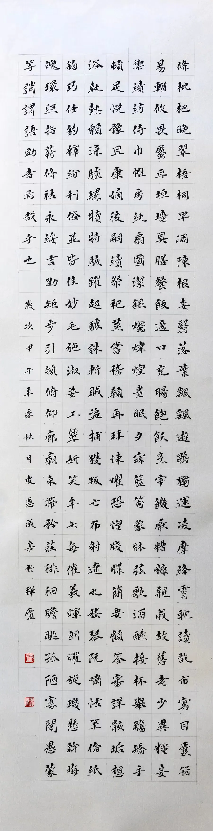 條枇杷晚翠梧桐早凋陳根委翳落葉飄颻遊鯤獨運凌摩絳霄耽讀翫市寓目囊箱
易輶攸畏屬耳垣牆具膳餐飯適口充腸飽飫烹宰飢厭糟糠親戚故舊老少異糧妾
御績紡侍巾帷房紈扇圓潔銀燭煒煌晝眠夕寐藍筍象床弦歌酒宴接杯舉觴矯手
頓足悅豫且康嫡後嗣續祭祀蒸嘗稽顙再拜悚懼恐惶箋牒簡要顧答審詳骸垢想
浴執熱願涼驢騾犢特駭躍超驤誅斬賊盜捕獲叛亡布射遼丸嵇琴阮嘯恬筆倫紙
鈞巧任釣釋紛利俗並皆佳妙毛施淑姿工顰妍笑年矢每催曦暉朗曜璇璣懸斡晦
魄環照指薪修祜永綏吉劭矩步引領俯仰廊廟束帶矜莊徘徊瞻眺孤陋寡聞愚蒙
等誚謂語助者焉哉乎也 歲次甲